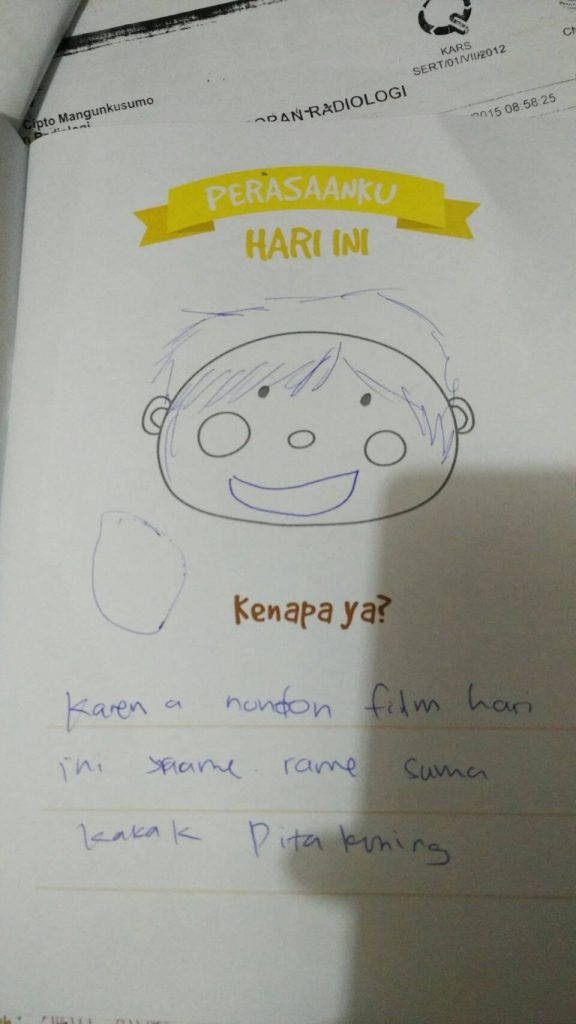 KARS
SERT/01/VII/2012
Cipto Mangunkusumo
RADIOLOGI
2015 08:58:25
PERASAANKU
HARI INI
Kenapa ya?
Karena nonton film hari
ini raame rame sama
kakak Pita kuning